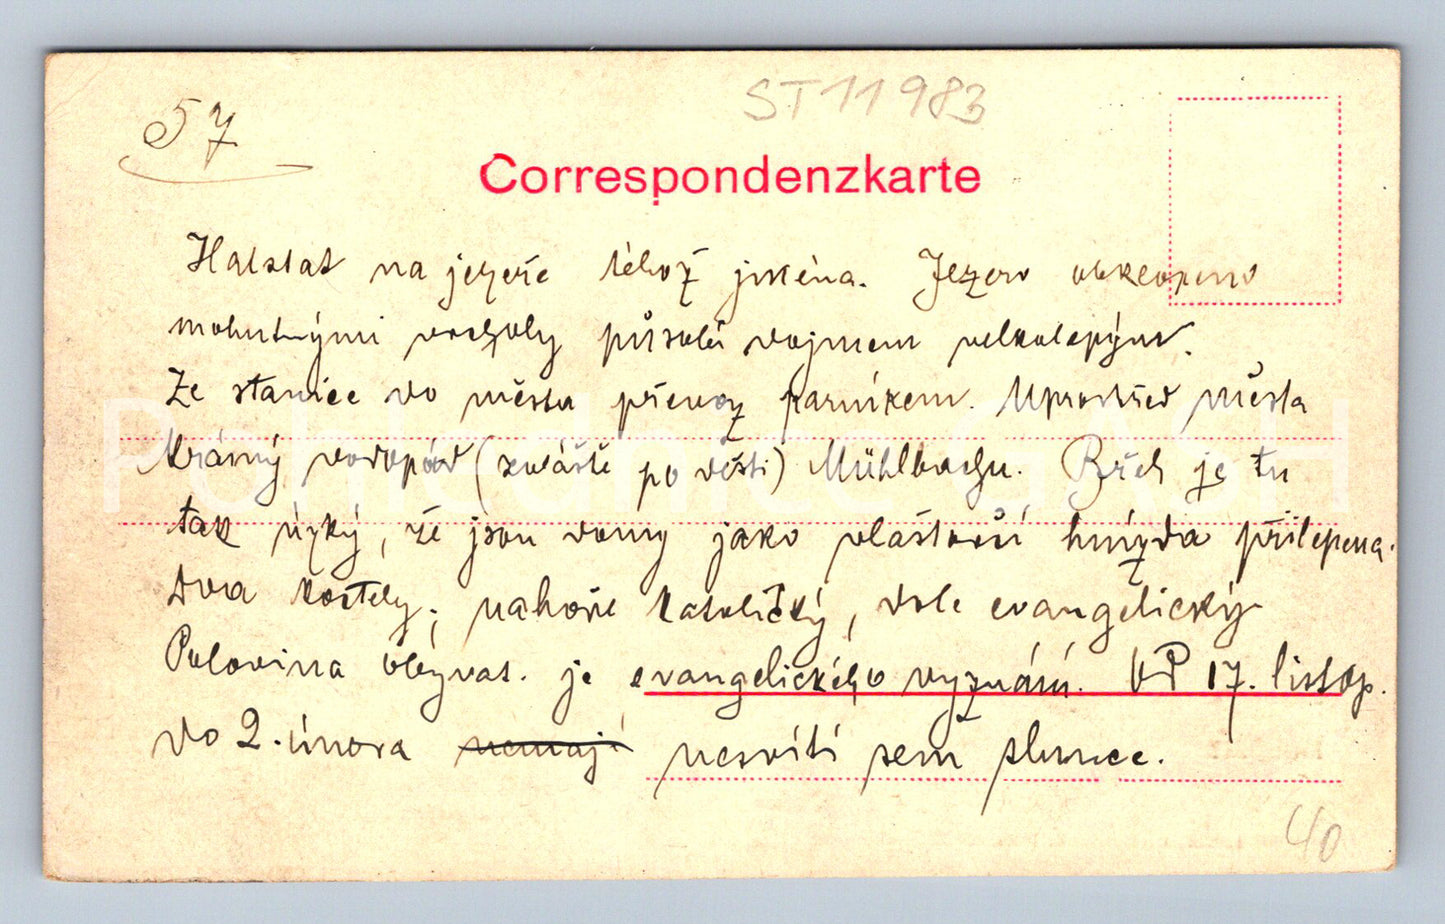 57
ST 11 983
Correspondenzkarte
Halstat na jezeře téhož jména. Jezero obklopeno
mohutnými vrcholy působí dojmem velkolepým.
Ze stanice do města převoz parníkem. Uprostřed města
krásný vodopád (zvláště po dešti) Mühlbachu. Břeh je tu
tak úzký, že jsou domy jako vlaštovčí hnízda přilepena.
Dva kostely; nahoře katolický, dole evangelický
Polovina obyvat. je evangelického vyznání. Od 17. listop.
do 2. února nemají nesvítí sem slunce.
40